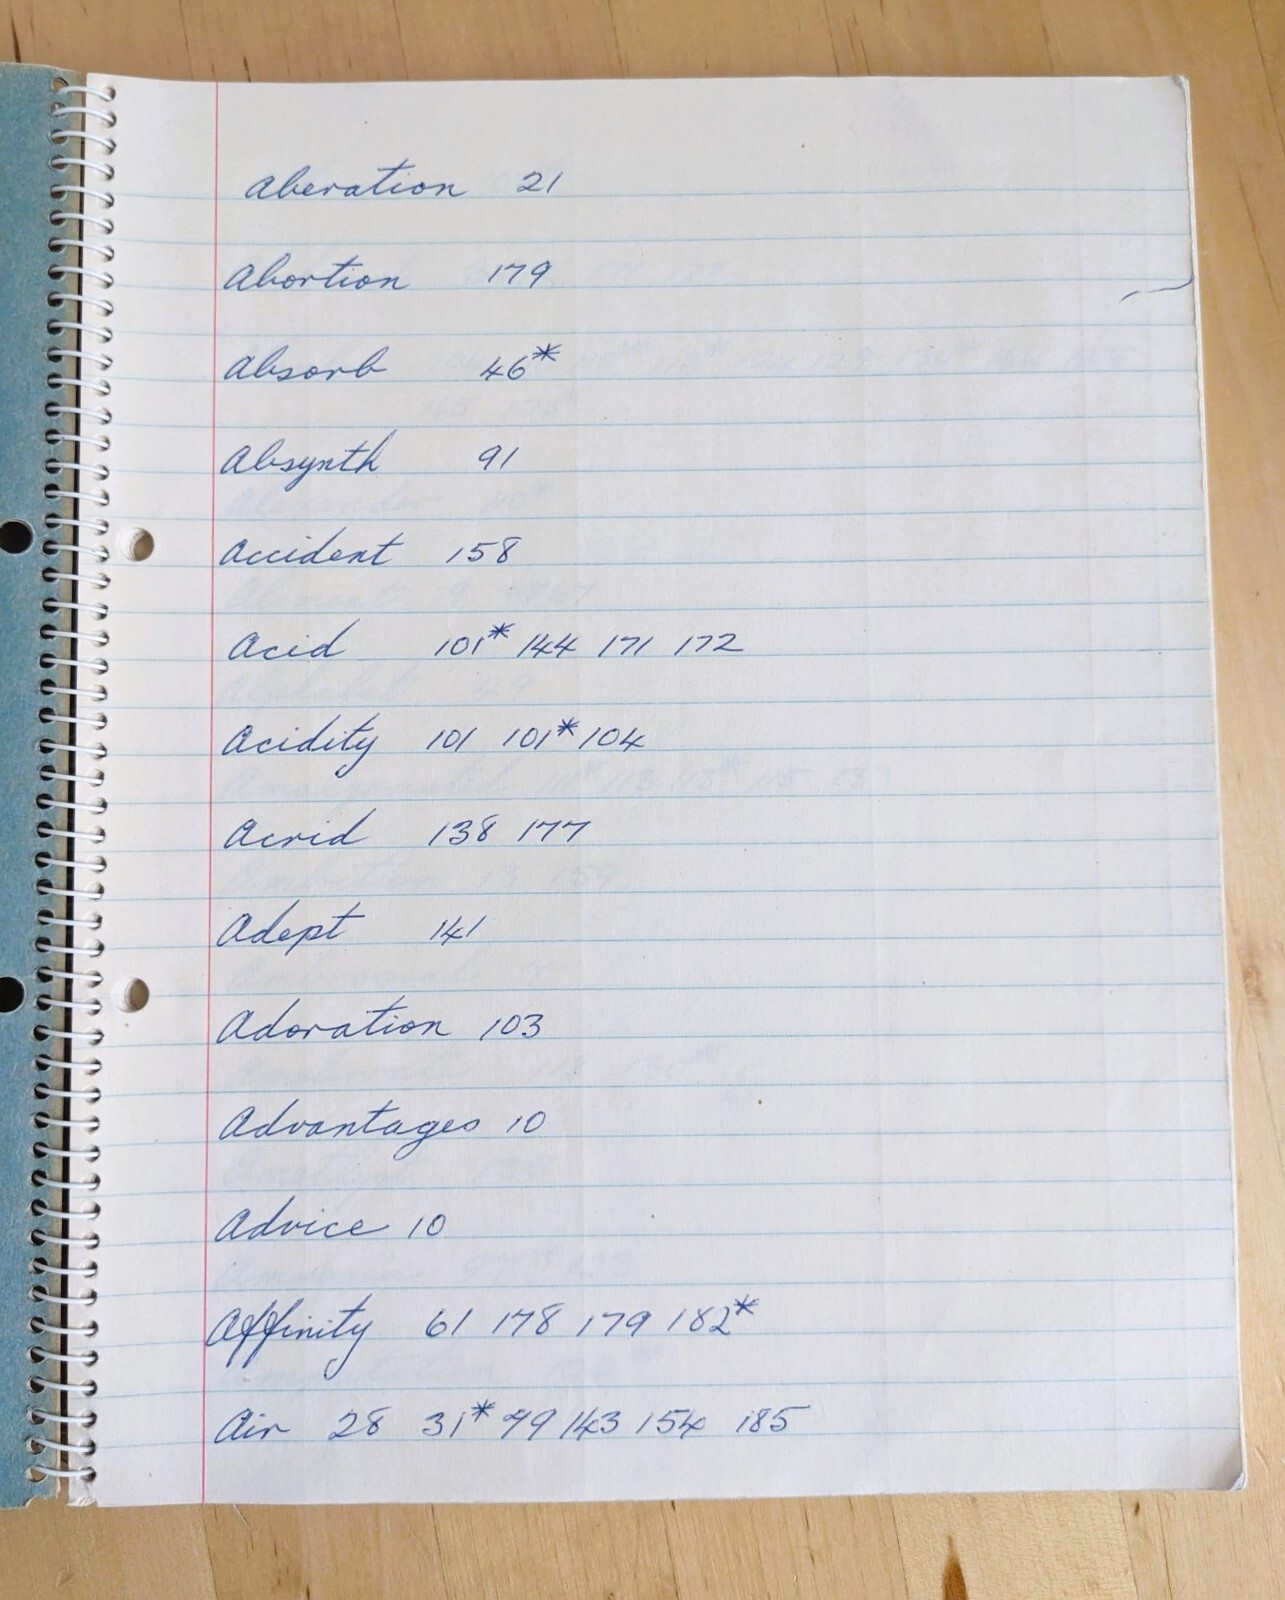 Aberation 21
Abortion 179
Absorb 46*
Absynth 91
Accident 158
Acid 101* 144 171 172
Acidity 101 101* 104
Acrid 138 177
Adept 141
Adoration 103
Advantages 10
Advice 10
Affinity 61 178 179 182*
Air 28 31* 143 154 185